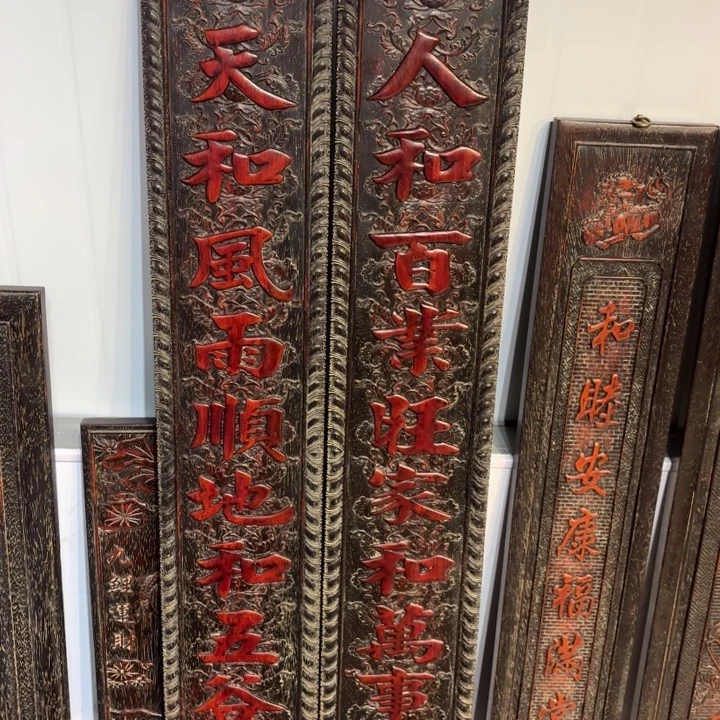 人和百業旺家和萬事
天和風雨順地和五谷
和財安康福滿堂